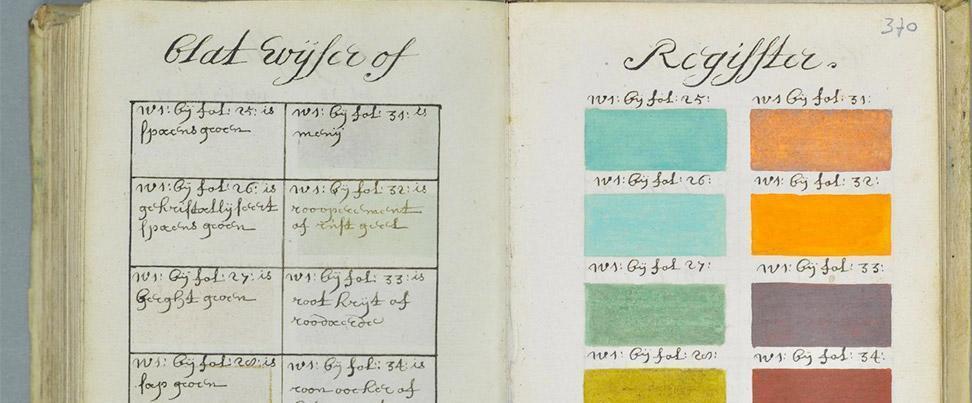 Blat Wijser of
w1: bij fol: 25: is
spaens groen
w1: bij fol: 31: is
menij
w1: bij fol: 26: is
gekristallijseert
spaens groen
w1: bij fol: 32: is
roooperement
of rust geel
w1: bij fol: 27: is
berght groen
w1: bij fol: 33: is
root krijt of
roodaerde
w1: bij fol: 28: is
sap groen
w1: bij fol: 34: is
roon oocker of
370
Regisster.
w1: bij fol: 25:
w1: bij fol: 31:
w1: bij fol: 26:
w1: bij fol: 32:
w1: bij fol: 27:
w1: bij fol: 33:
w1: bij fol: 28:
w1: bij fol: 34: